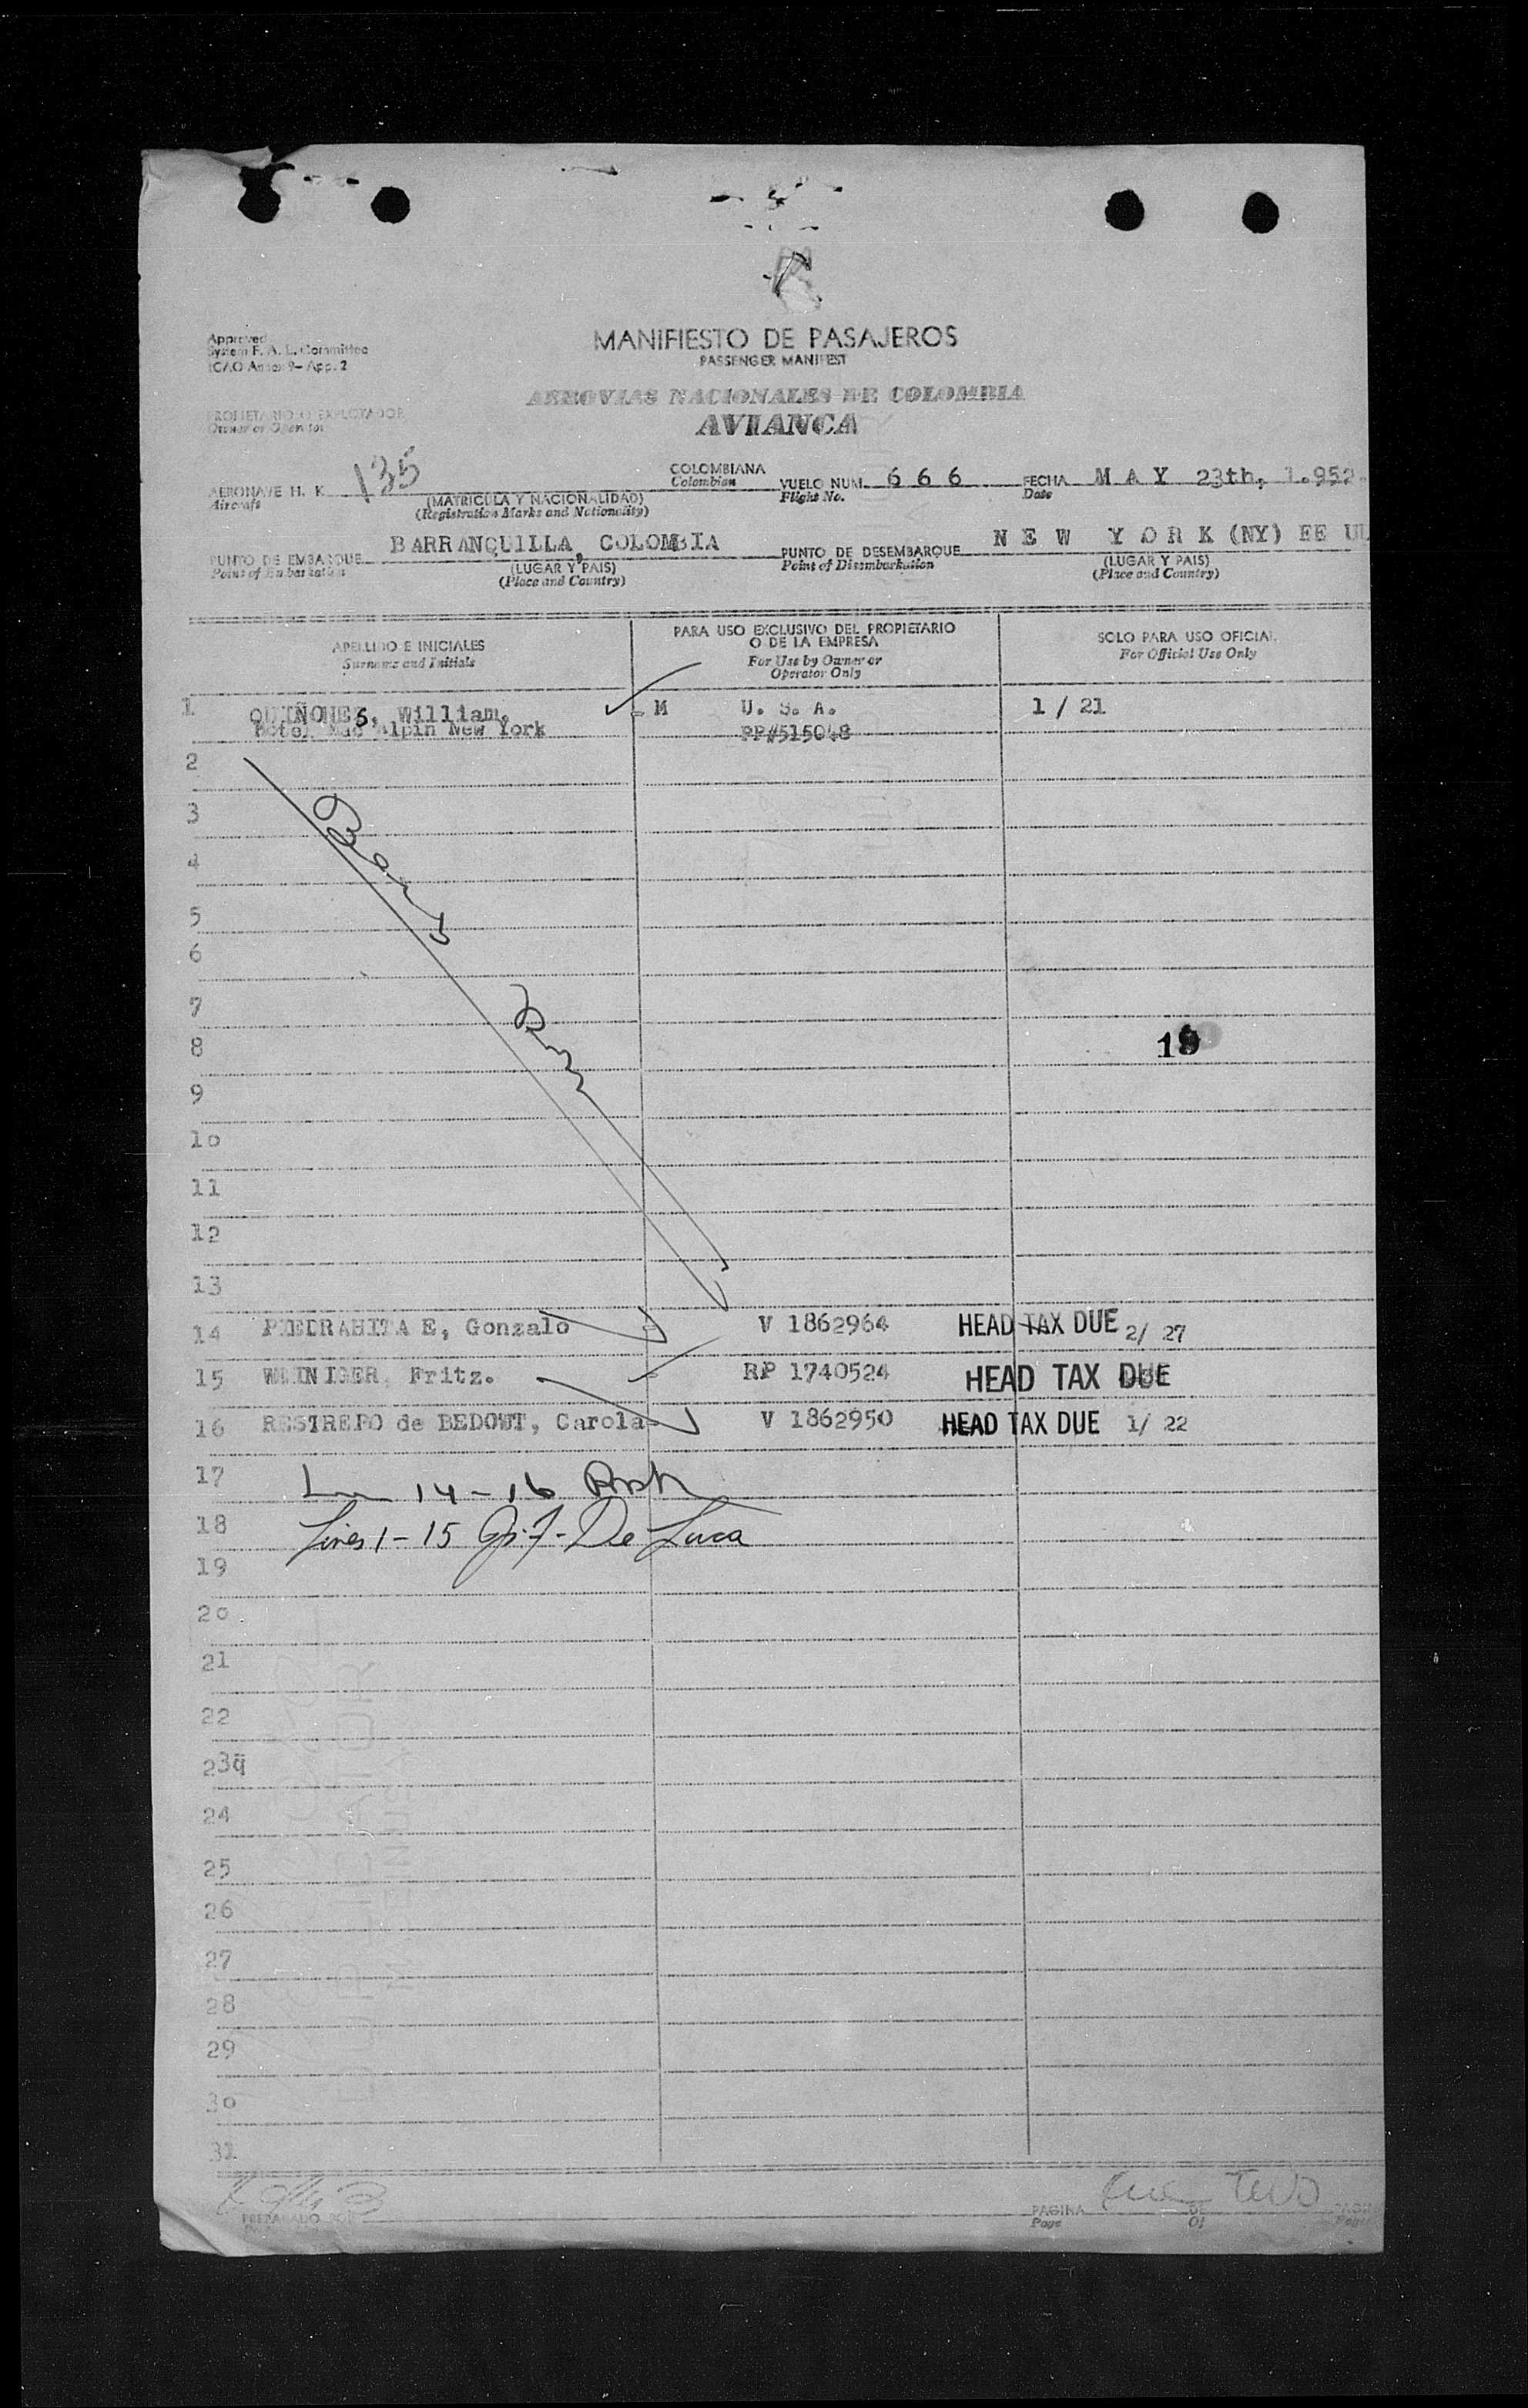 Approved
System F. A. L. Committee
ICAO Annex 9- App. 2
MANIFIESTO DE PASAJEROS
PASSENGER MANIFEST
AEROVIAS NACIONALES DE COLOMBIA
AVIANCA
PROPIETARIO O EXPLOTADOR
Owner or Operator
AERONAVE H. K. 135 COLOMBIANA VUELO NUM. 6 6 6 FECHA M A Y 23th, 1.952.
Aircraft (MATRICULA Y NACIONALIDAD) Colombian Flight No. Date
(Registration Marks and Nationality)
PUNTO DE EMBARQUE BARRANQUILLA, COLOMBIA PUNTO DE DESEMBARQUE N E W Y O R K (NY) EE UU
Point of Embarkation (LUGAR Y PAIS) Point of Disembarkation (LUGAR Y PAIS)
(Place and Country) (Place and Country)
APELLIDO E INICIALES PARA USO EXCLUSIVO DEL PROPIETARIO SOLO PARA USO OFICIAL
O DE LA EMPRESA
Surname and Initials For Use by Owner or For Official Use Only
Operator Only
1 QUIÑONES, William. - M U. S. A. 1 / 21
Hotel Mac Alpin New York PP#515048
2
3
4
5
6
7
8 19
9
10
11
12
13
14 PIEDRAHITA E, Gonzalo - V 1862964 HEAD TAX DUE 2/ 27
15 WEINIGER, Fritz. - RP 1740524 HEAD TAX DUE
16 RESTREPO de BEDOUT, Carola- V 1862950 HEAD TAX DUE 1/ 22
17 14-16
18 Lines 1-15 De Luca
19
20
21
22
23
24
25
26
27
28
29
30
31
PREPARADO POR PAGINA DE PAGINAS
Page Of Pages